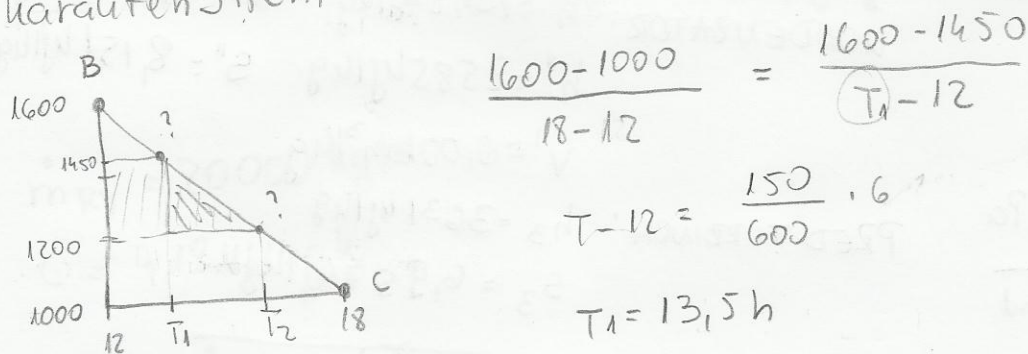 B
1600
?
1450
?
1200
C
1000
12 T1 T2 18
1600-1000 / 18-12 = 1600-1450 / T1-12
T-12 = 150/600 · 6
T1 = 13,5 h